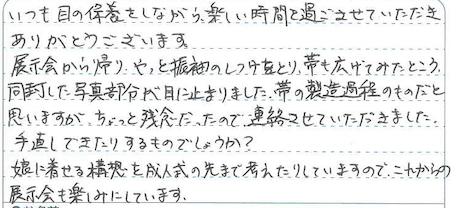 いつも目の保養をしながら、楽しい時間を過ごさせていただき
ありがとうございます。
展示会から帰り、やっと振袖のしつけをとり、帯も広げてみたところ、
同封した写真部分が目に止まりました。帯の製造過程のものだと
思いますが、ちょっと残念だったので連絡させていただきました。
手直しできたりするものでしょうか?
娘に着せる構想を成人式の先まで考えたりしていますので、これからの
展示会も楽しみにしています。